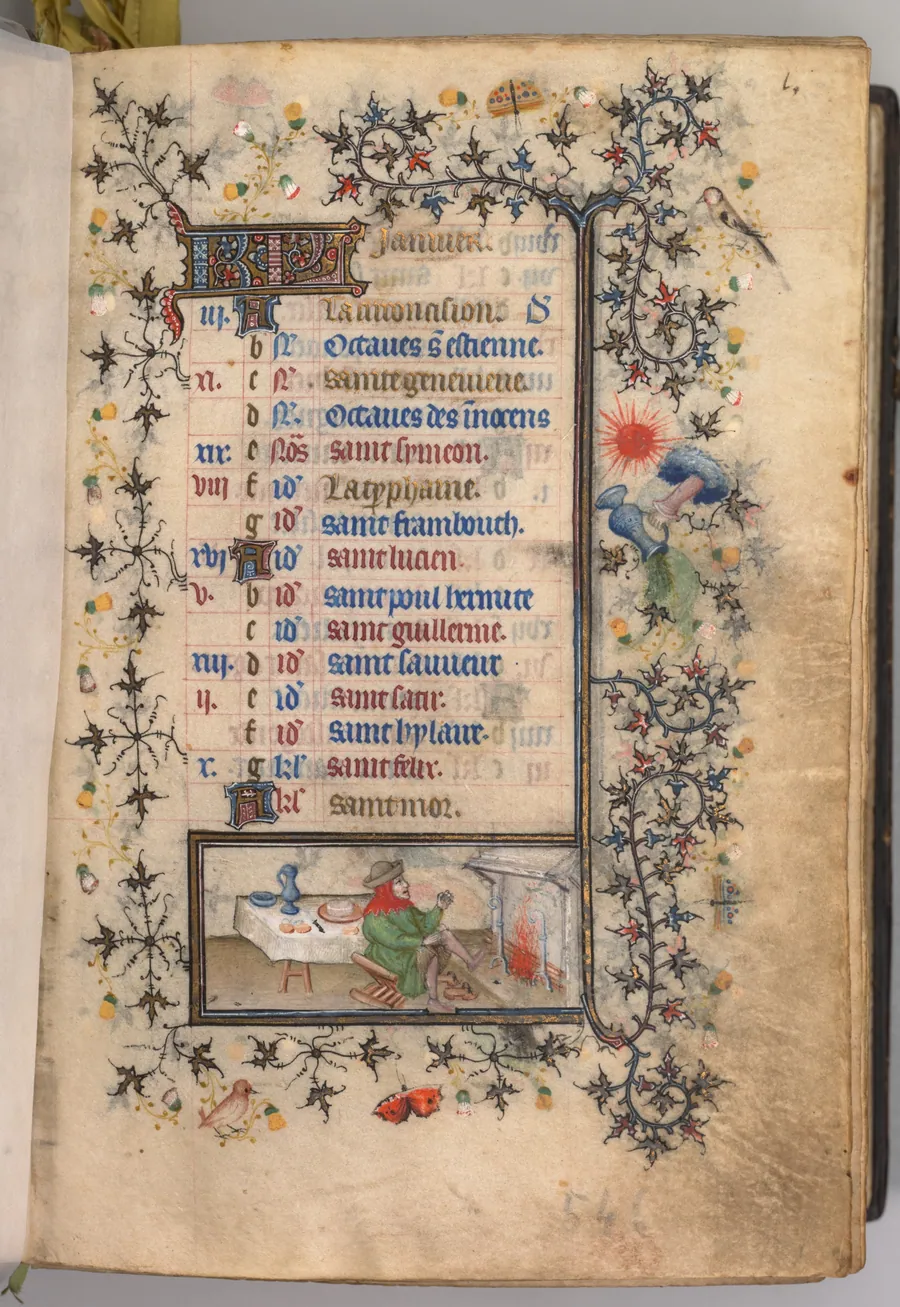 1.
KL Januier.
iii. A La circoncision. D
b N̅ Octaues s̄ estienne.
xi. c N̅ sainte geneuieue.
d N̅. Octaues des īnocens
xix. e No̅s saint symeon.
viii f id' La typhaine.
g id' saint frambouch.
xvi A id' saint lucien.
v. b id' saint poul hermite
c id' saint guillerme.
xiii. d id' saint sauueur
ii. e id' saint satir.
f id' saint hylaire.
x. g kl' saint felix.
A kl' saint mor.